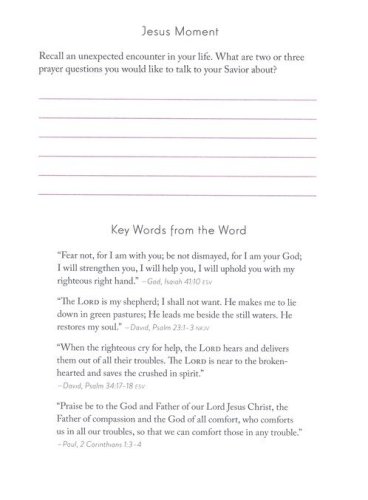 Jesus Moment
Recall an unexpected encounter in your life. What are two or three
prayer questions you would like to talk to your Savior about?
Key Words from the Word
“Fear not, for I am with you; be not dismayed, for I am your God;
I will strengthen you, I will help you, I will uphold you with my
righteous right hand.” –God, Isaiah 41:10 ESV
“The LORD is my shepherd; I shall not want. He makes me to lie
down in green pastures; He leads me beside the still waters. He
restores my soul.” –David, Psalm 23:1-3 NKJV
“When the righteous cry for help, the LORD hears and delivers
them out of all their troubles. The LORD is near to the broken-
hearted and saves the crushed in spirit.”
–David, Psalm 34:17-18 ESV
“Praise be to the God and Father of our Lord Jesus Christ, the
Father of compassion and the God of all comfort, who comforts
us in all our troubles, so that we can comfort those in any trouble.”
–Paul, 2 Corinthians 1:3-4